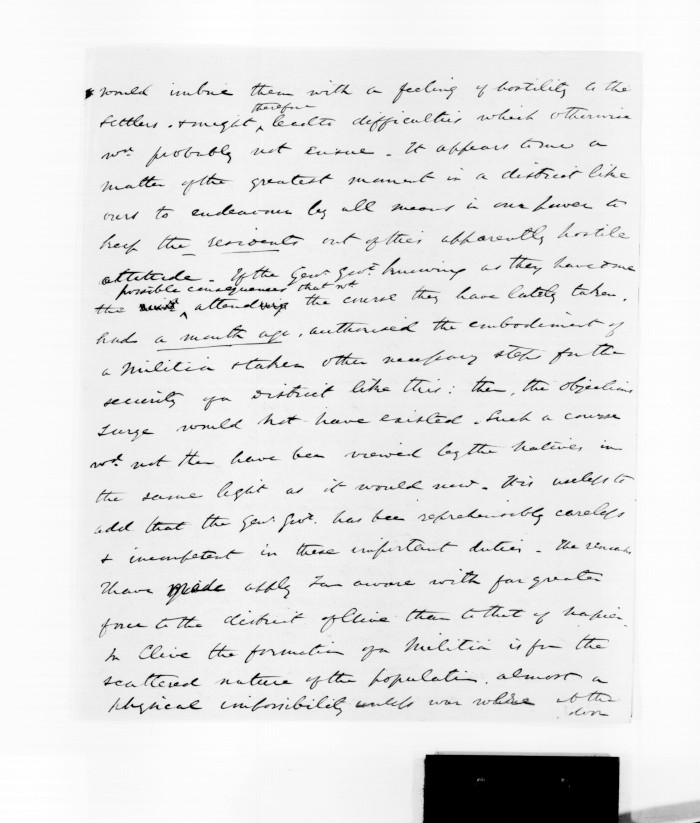 would imbue them with a feeling of hostility to the
therefore
settlers. & might, lead to difficulties which otherwise
wd. probably not ensue. It appears to me a
matter of the greatest moment in a district like
ours to endeavour by all means in our power to
keep the residents out of this apparently hostile
attitude. If the Genl. Govt. knowing as they have done
possible consequences that wd.
the attend the course they have lately taken,
had a month ago, authorised the embodiment of
a Militia & taken other necessary steps for the
security of a District like this: then, the objections
I urge would not have existed. Such a course
wd. not then have been viewed by the Natives in
the same light as it would now. It is useless to
add that the Genl. Govt. has been reprehensibly careless
& incompetent in these important duties. The remarks
I have made apply I am aware with far greater
force to the district of Clive than to that of Napier.
In Clive the formation of a Militia is from the
scattered nature of the population, almost a
physical impossibility unless war were at the
door